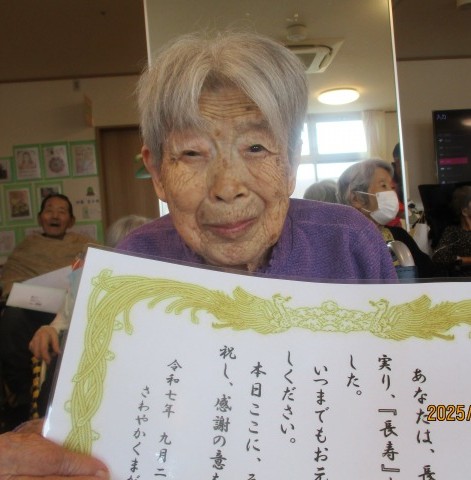 あなたは、長
実り、『長寿』
した。
いつまでもお元
しください。
本日ここに、
祝し、感謝の意
令和七年 九月二
さわやかくまだ
2025/